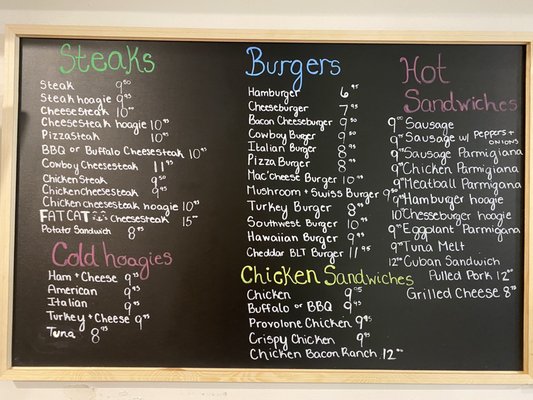 Steaks
Steak 9⁵⁰
Steak hoagie 9⁹⁵
Cheesesteak 10⁰⁰
Cheesesteak hoagie 10⁹⁵
Pizzasteak 10⁹⁵
BBQ or Buffalo Cheesesteak 10⁹⁵
Cowboy Cheesesteak 11⁹⁵
Chicken Steak 9⁵⁰
Chicken cheesesteak 9⁹⁵
Chicken cheesesteak hoagie 10⁹⁵
FAT CAT Cheesesteak 15⁰⁰
Potato Sandwich 8⁹⁵
Cold hoagies
Ham + Cheese 9⁹⁵
American 9⁹⁵
Italian 9⁹⁵
Turkey + Cheese 9⁹⁵
Tuna 8⁹⁵
Burgers
Hamburger 6⁹⁵
Cheeseburger 7⁹⁵
Bacon Cheeseburger 9⁵⁰
Cowboy Burger 9⁵⁰
Italian Burger 8⁹⁵
Pizza Burger 8⁹⁵
Mac'cheese Burger 10⁰⁰
Mushroom + Swiss Burger 9⁵⁰
Turkey Burger 8⁹⁵
Southwest Burger 10⁹⁵
Hawaiian Burger 9⁹⁵
Cheddar BLT Burger 11⁹⁵
Chicken Sandwiches
Chicken 9⁰⁵
Buffalo or BBQ 9⁹⁵
Provolone Chicken 9⁹⁵
Crispy Chicken 9⁹⁵
Chicken Bacon Ranch 12⁰⁰
Hot
Sandwiches
9 Sausage
9 Sausage w/ PEPPERS + ONIONS
9 Sausage Parmigiana
9 Chicken Parmigiana
9 Meatball Parmigiana
9 Hamburger hoagie
10 Chesseburger hoagie
9 Eggplant Parmigiana
9 Tuna Melt
12 Cuban Sandwich
Pulled Pork 12⁰⁰
Grilled Cheese 8⁹⁵